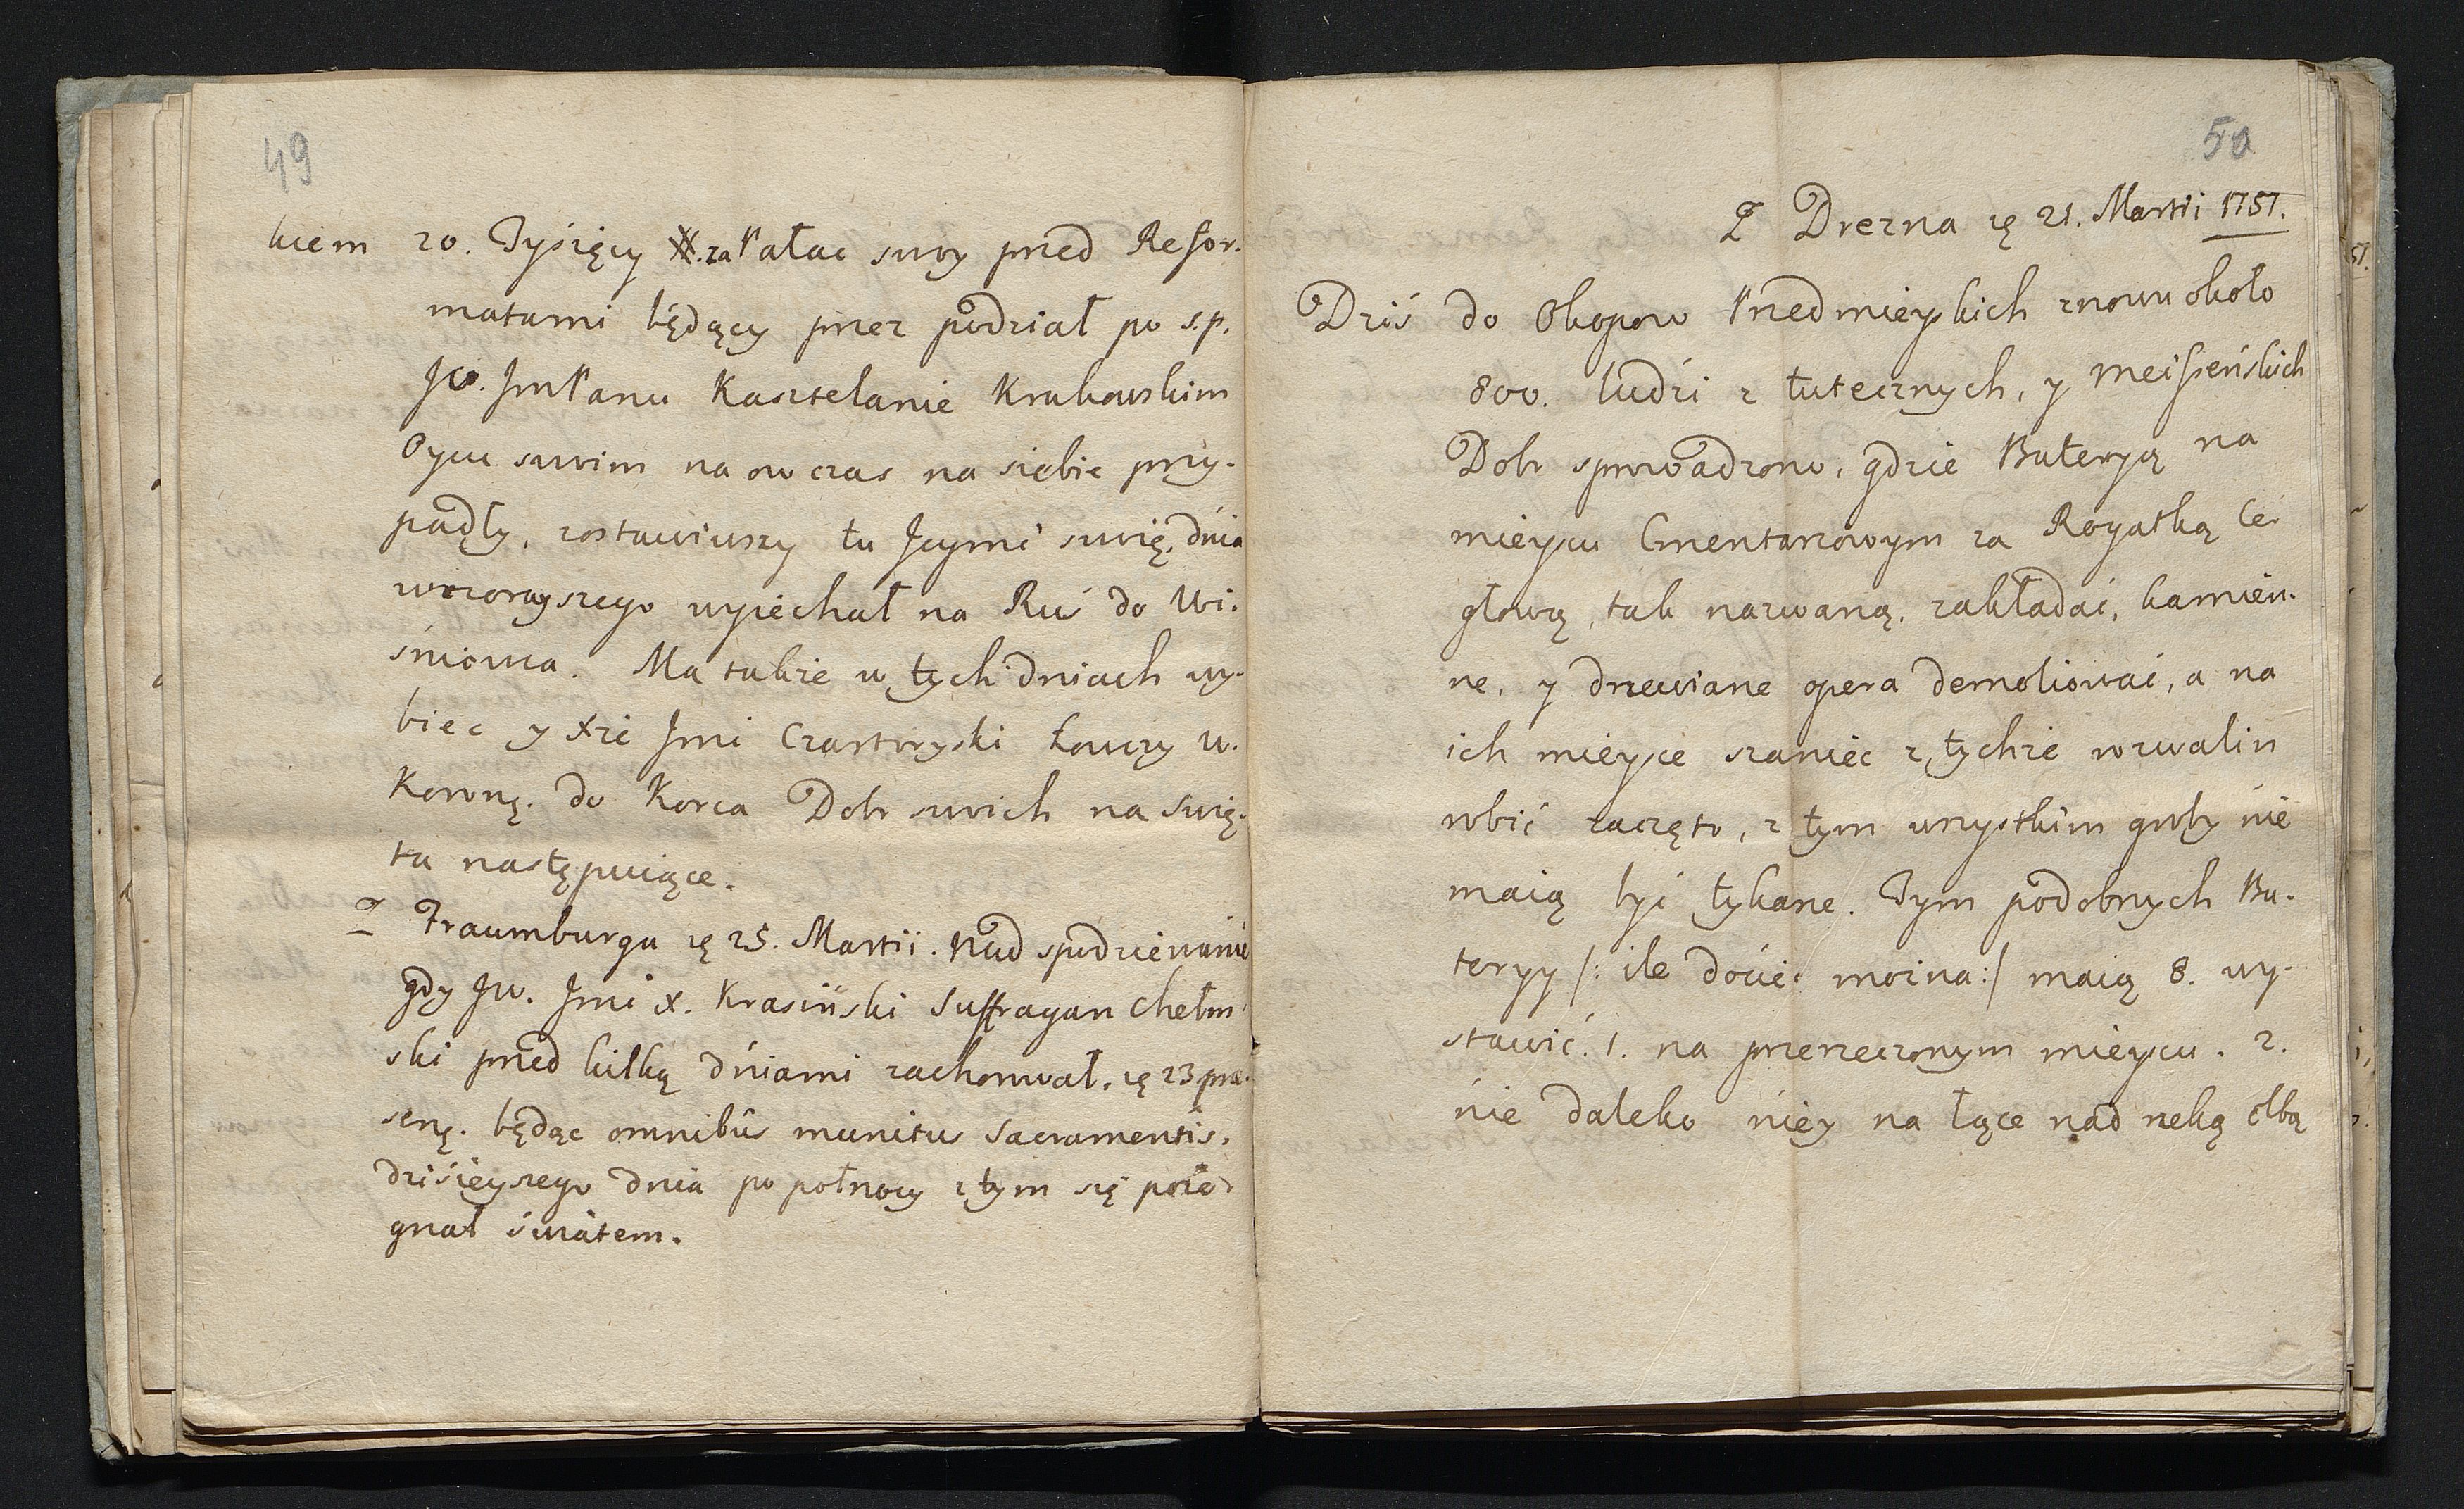 49
kiem 20. Tysięcy XX. za Pałac swoy przed Refor-
matami będący przez podział po s.p.
JW. JmPanu Kasztelanie Krakowskim
Oycu swoim na ow czas na siebie przy-
padły, zostawiwszy tu Jeymć swoię, dnia
wczorayszego wyiechał na Ruś do Wi-
śniowca. Ma także w tych dniach wy-
biec y Xże Jmć Czartoryski Łowczy W.
Koronę. do Korca Dobr swoich na Swię-
ta następuiące.
Z Fraumburga 25. Martii. Nad spodziewanie
gdy JW. Jmć X. Krasiński Suffragan Chełm-
ski przed kilką dniami zachorował, 23 præ-
senę. będąc omnibus munitus Sacramentis,
dzisieyszego dnia po połnocy z tym się poże-
gnał światem.
50
Z Drezna 21. Martii 1757.
Dziś do Okopow Przedmieyskich znowu około
800. ludzi z tutecznych, y Meisseńskich
Dobr sprowadzono, gdzie Bateryą na
mieyscu Cmentarzowym za Rogatką Ce-
głową, tak nazwaną, zakładać, kamien-
ne, y drzewiane opera demoliować, a na
ich mieysce szaniec z tychże rozwalin
robić zaczęto, z tym wszystkim groby nie
maią być tykane. Tym podobnych Ba-
teryy /: ile dociec można :/ maią 8. wy-
stawić. 1. na przerzeczonym mieyscu. 2.
nie daleko niey na łące nad rzeką Elbą